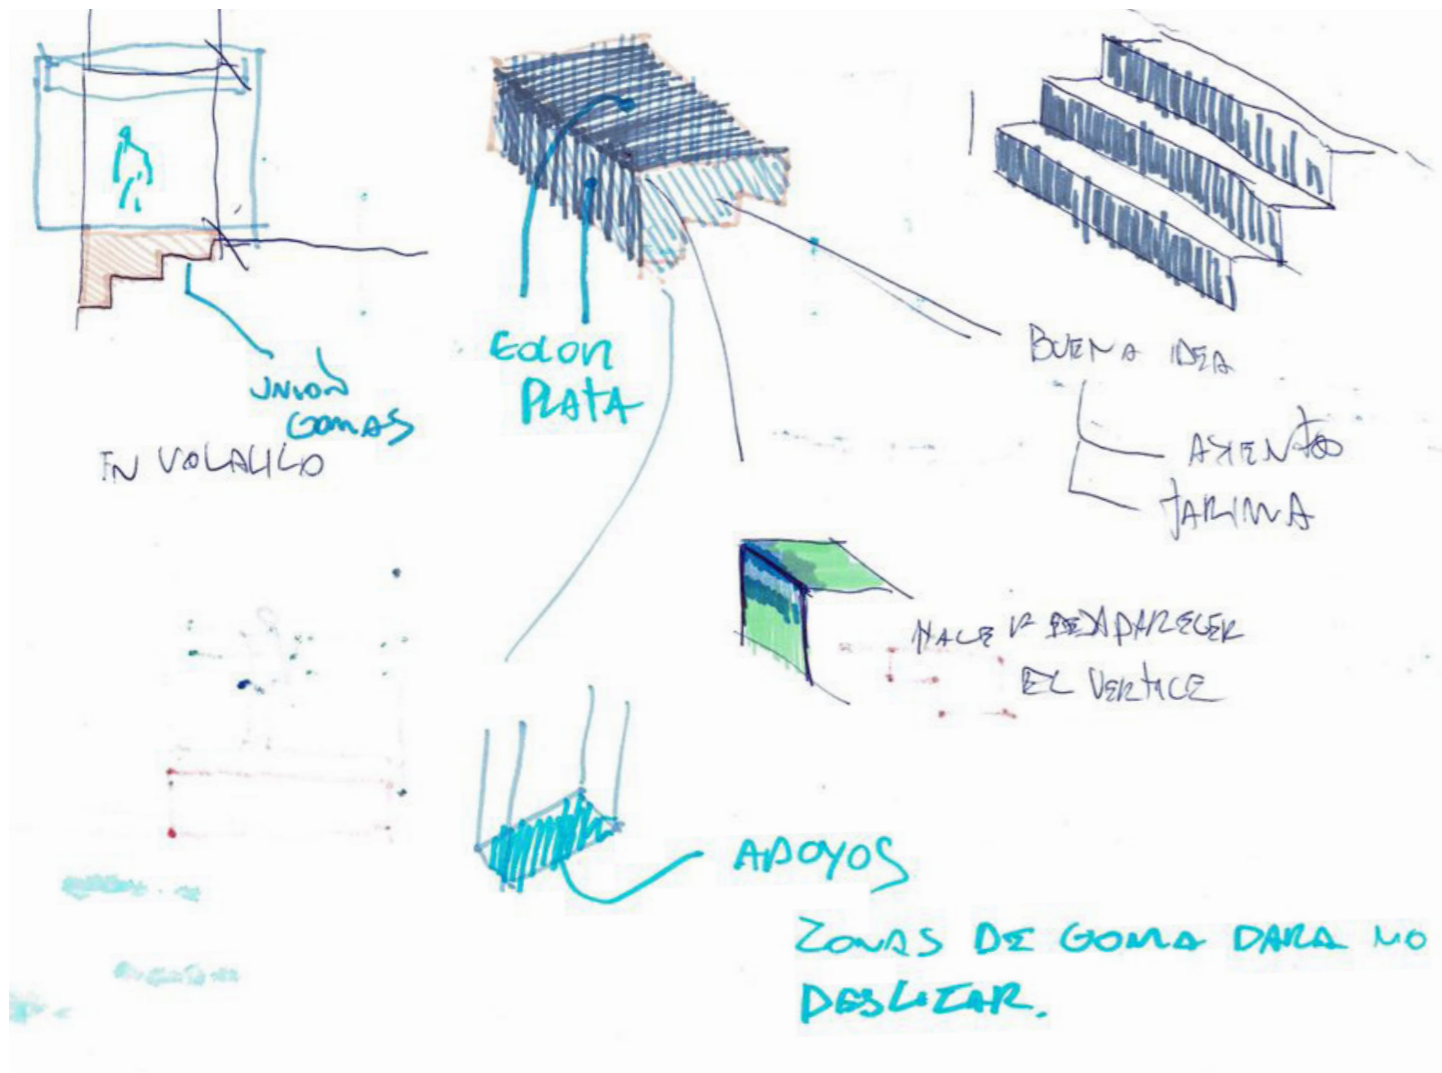 UNION
GOMAS
EN VOLADIZO
COLOR
PLATA
BUENA IDEA
ASIENTO
TARIMA
HACE DESAPARECER
EL VERTICE
APOYOS
ZONAS DE GOMA PARA NO
DESLIZAR.